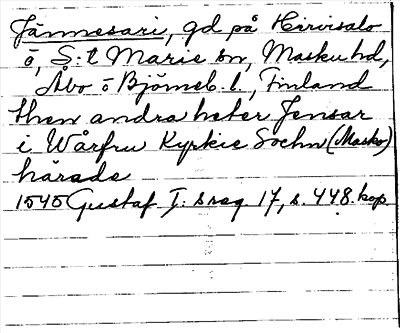 Jännesari, gd på Hirvisalo
ö, S:t Marie sn, Masku hd,
Åbo o Björneb. l., Finland
then andra heter Jensar
i Wårfru Kyrkie Sochn (Masko)
härade
1545 Gustaf I: s reg 17, s. 448. kop.